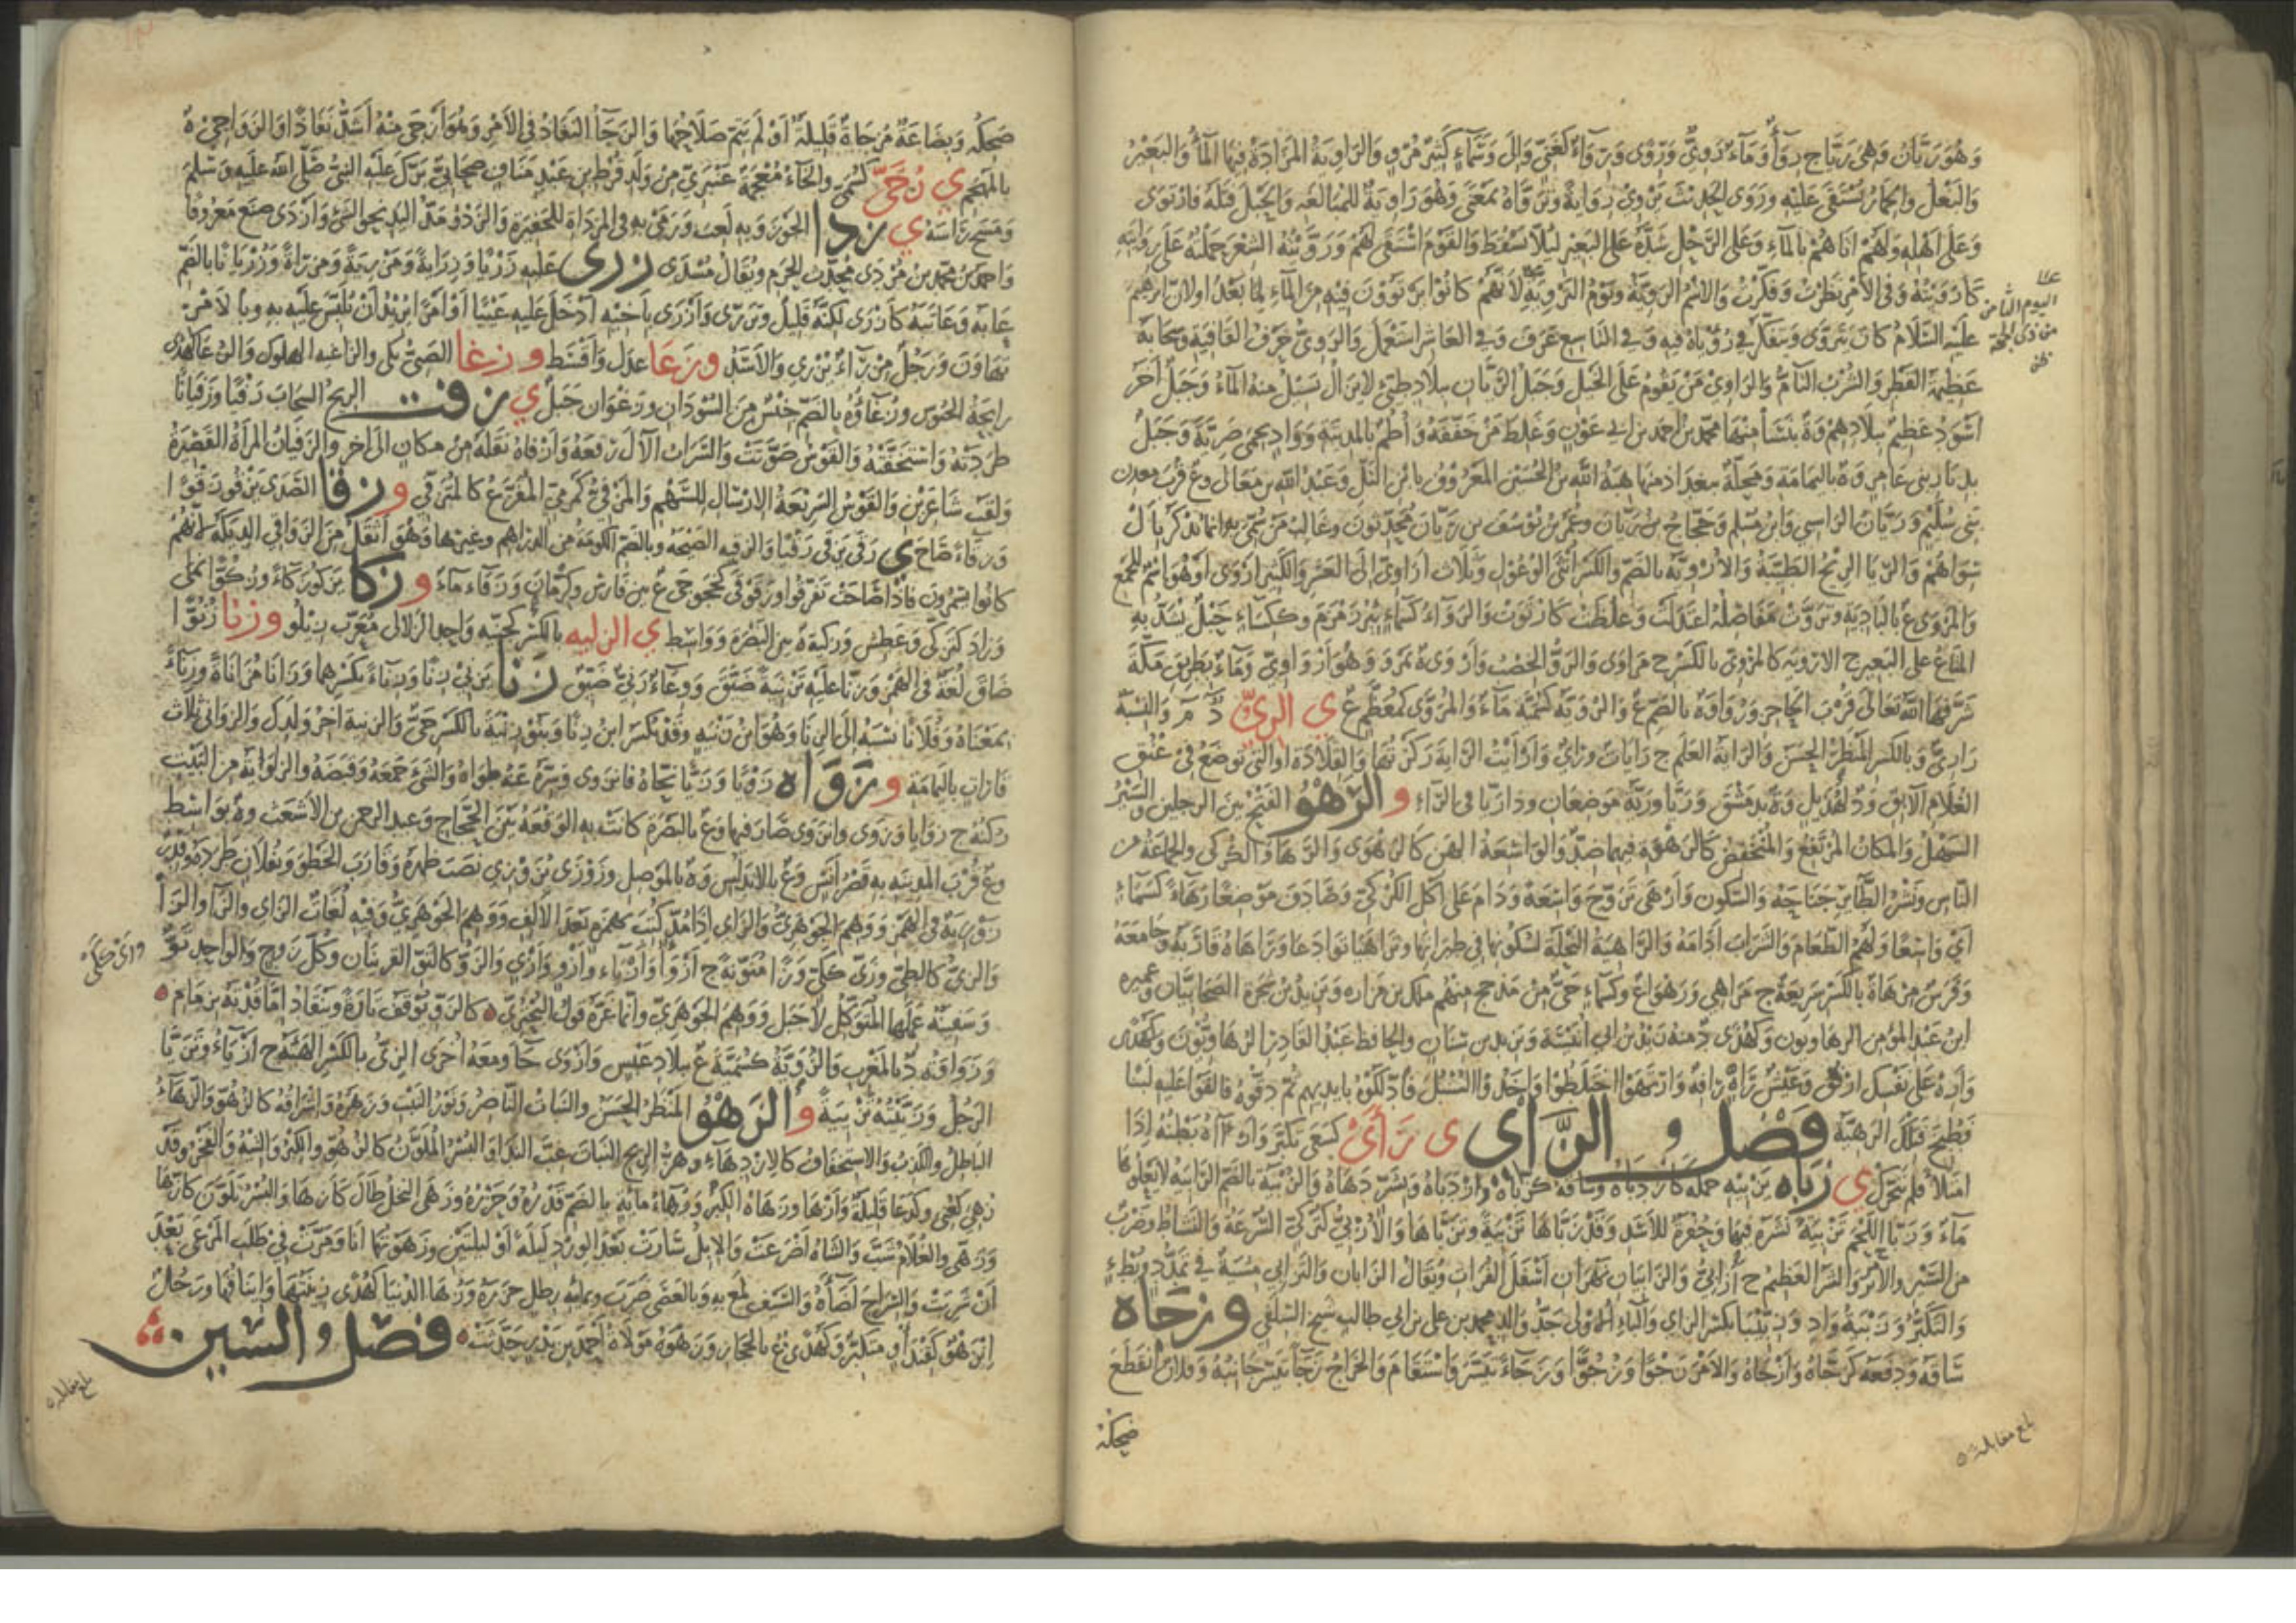 وَهُوَ رَيَّانُ وَهِيَ رَيَّا ج رِوَآءٌ وَمَآءٌ رَوِيٌّ وَرِوًى وَرَوَآءٌ كَغَنِيٍّ وَإِلَى وَسَمَآءٍ كَثِيرٌ مُرْوٍ وَالرَّاوِيَةُ المَزَادَةُ فِيهَا المَآءُ وَالبَعِيْرُ
وَالبَغْلُ وَالحِمَارُ يُسْتَقَى عَلَيْهِ وَرَوَى الحَدِيْثَ يَرْوِيْ رِوَايَةً وَتَرَوَّاهُ بِمَعْنًى وَهُوَ رَاوِيَةٌ لِلْمُبَالَغَةِ وَالحَبْلَ فَتَلَهُ فَارْتَوَى
وَعَلَى أَهْلِهِ وَلَهُمْ أَتَاهُمْ بِالمَآءِ وَعَلَى الرَّحْلِ شَدَّهُ عَلَى البَعِيْرِ لِئَلَّا يَسْقُطَ وَالقَوْمَ اسْتَقَى لَهُمْ وَرَوَّيْتُهُ الشِّعْرَ حَمَلْتُهُ عَلَى رِوَايَتِهِ
كَأَرْوَيْتُهُ وَفِي الأَمْرِ نَظَرْتُ وَفَكَّرْتُ وَالاِسْمُ الرَّوِيَّةُ وَيَوْمُ التَّرْوِيَةِ لِأَنَّهُمْ كَانُوا يَرْتَوُوْنَ فِيْهِ مِنَ المَآءِ لِمَا بَعْدُ أَوْ لِأَنَّ إِبْرَاهِيْمَ
اليوم الثامن
من ذى الحجة
عَلَيْهِ السَّلَامُ كَانَ يَتَرَوَّى وَيَتَفَكَّرُ فِي رُؤْيَاهُ فِيْهِ وَفِي التَّاسِعِ عَرَفَ وَفِي العَاشِرِ اسْتَعْمَلَ وَالرَّوِيُّ حَرْفُ القَافِيَةِ وَسَحَابَةٌ
عَظِيْمَةُ القَطْرِ وَالشُّرْبُ التَّامُّ وَالرَّاوِيْ مَنْ يَقُوْمُ عَلَى الخَيْلِ وَجَبَلُ الرَّيَّانِ بِبِلَادِ طَيِّئٍ لَا يَزَالُ يَسِيْلُ مِنْهُ المَآءُ وَجَبَلٌ آخَرُ
أَسْوَدُ عَظِيْمٌ بِبِلَادِهِمْ وَة بِنَسَا مِنْهَا مُحَمَّدُ بْنُ أَحْمَدَ بْنِ أَبِي عَوْنٍ وَغَلِطَ مَنْ خَفَّفَهُ وَأُطُمٌ بِالمَدِيْنَةِ وَوَادٍ بِحِمَى ضَرِيَّةَ وَجَبَلٌ
بِدِيَارِ بَنِي عَامِرٍ وَة بِاليَمَامَةِ وَمَحَلَّةٌ بِبَغْدَادَ مِنْهَا هِبَةُ اللهِ بْنُ الحُسَيْنِ المَعْرُوْفُ بِابْنِ التَّلِّ وَعَبْدُ اللهِ بْنُ مَعَالٍ وَع قُرْبَ مَعْدِنِ
بَنِي سُلَيْمٍ وَرَيَّانُ الرَّاسِبِي وَابْنُ مُسْلِمٍ وَحَجَّاجُ بْنُ رَيَّانَ وَعُمَرُ بْنُ يُوْسُفَ بْنِ رَيَّانَ مُحَدِّثُوْنَ وَغَالِبُ مَنْ سُمِّيَ بِهِ إِنَّمَا يُذْكَرُ بِأَلْ
سِوَاهُمْ وَالرَّيَّا الرِّيْحُ الطَّيِّبَةُ وَالأُرْوِيَّةُ بِالضَّمِّ وَالكَسْرِ أُنْثَى الوُعُوْلِ وَثَلَاثُ أَرَاوِيَّ إِلَى العَشْرِ وَالكَثِيْرُ أَرْوَى أَوْ هُوَ اسْمٌ لِلْجَمْعِ
وَالمَرْوَى ع بِالبَادِيَةِ وَتَرَوَّتْ مَفَاصِلُهُ اعْتَدَلَتْ وَغَلُظَتْ كَارْتَوَتْ وَالرَّوَآءُ كَسَمَآءٍ بِئْرُ زَمْزَمَ وَكَكِسَآءٍ حَبْلٌ يُشَدُّ بِهِ
المَتَاعُ عَلَى البَعِيْرِ ج الأَرْوِيَةُ كَالمِرْوَى بِالكَسْرِ ج مَرَاوَى وَالرَّوُّ الخِصْبُ وَأَرْوَى ة بِمَرْوَ وَهُوَ أَرْوَاوِيٌّ وَمَآءٌ بِطَرِيْقِ مَكَّةَ
شَرَّفَهَا اللهُ تَعَالَى قُرْبَ الحَاجِرِ وَرُوَاوَةُ بِالضَّمِّ ع وَالرُّوَيَّةُ كَسُمَيَّةَ مَآءٌ وَالمُرَوَّى كَمُعَظَّمٍ ع ي الرَّيُّ د م وَالنِّسْبَةُ
رَازِيٌّ وَبِالكَسْرِ المَنْظَرُ الحَسَنُ وَالرَّايَةُ العَلَمُ ج رَايَاتٌ وَرَايٌ وَأَرْأَيْتُ الرَّايَةَ رَكَزْتُهَا وَالقِلَادَةُ أَوِ الَّتِي تُوْضَعُ فِي عُنُقِ
الغُلَامِ الآبِقِ وَد لِهُذَيْلٍ وَة بِدِمَشْقَ وَرَيَّا وَرَيَّةُ مَوْضِعَانِ وَدَارَيَّا فِي الرَّآءِ و الرَّهْوُ الفَتْحُ بَيْنَ الرِّجْلَيْنِ وَالسَّيْرُ
السَّهْلُ وَالمَكَانُ المُرْتَفِعُ وَالمُنْخَفِضُ كَالرَّهْوَةِ فِيهِمَا ضِدٌّ وَالوَاسِعَةُ الهَنِ كَالرَّهْوَى وَالرَّهَا وَالكُرْكِيُّ وَالجَمَاعَةُ مِنَ
النَّاسِ وَنَشْرُ الطَّائِرِ جَنَاحَهُ وَالسُّكُوْنُ وَأَرْهَى تَزَوَّجَ وَاسِعَةً وَدَامَ عَلَى أَكْلِ الكُرْكِيِّ وَصَادَفَ مَوْضِعًا رَهَآءً كَسَمَآءٍ
أَيْ وَاسِعًا وَلَهُمُ الطَّعَامَ وَالشَّرَابَ أَدَامَهُ وَالرَّاهِيَةُ النَّحْلَةُ لِسُكُوْنِهَا فِي طَيَرَانِهَا وَتَرَاهَيَا تَوَادَعَا وَرَاهَاهُ قَارَبَهُ وَجَامَعَهُ
وَفَرَسٌ مِرْهَاةٌ بِالكَسْرِ سَرِيْعَةٌ ج مَرَاهِي وَرَهْوَا ع وَكَسَمَآءٍ حَيٌّ مِنْ مَذْحِجٍ مِنْهُمْ مَالِكُ بْنُ مُرَارَةَ وَيَزِيْدُ بْنُ شَجَرَةَ الصَّحَابِيَّانِ وَعَمِيْرَةُ
ابْنُ عَبْدِ المُؤْمِنِ الرَّهَاوِيُّوْنَ وَكَهُدًى د مِنْهُ زَيْدُ بْنُ أَبِي أُنَيْسَةَ وَيَزِيْدُ بْنُ سِنَانٍ وَالحَافِظُ عَبْدُ القَادِرِ الرُّهَاوِيُّوْنَ
وَارْهُ عَلَى نَفْسِكَ ارْفُقْ وَعَيْشٌ رَاهٍ رَافِهٌ وَارْتَهَوُا اخْتَلَطُوا وَأَخَذُوا السُّنْبُلَ فَادَّلَكُوْهُ بِأَيْدِيْهِمْ ثُمَّ دَقُّوْهُ فَأَلْقَوْا عَلَيْهِ لَبَنًا
فَطُبِخَ فَتِلْكَ الرَّهِيَّةُ فَصْلُ الزَّاي ي زَأَى كَسَعَى تَكَبَّرَ وَأَزْآهُ بَطْنُهُ إِذَا
امْتَلَأَ فَلَمْ يَتَحَرَّكْ ي زَبَاهُ يَزْبِيْهِ حَمَلَهُ كَازْدَبَاهُ وَسَاقَهُ كَزَبَّاهُ وَازْدَبَاهُ وَبِشَرٍّ دَهَاهُ وَالزُّبْيَةُ بِالضَّمِّ الرَّابِيَةُ لَا يَعْلُوْهَا
مَآءٌ وَزَبَّا اللَّحْمَ تَزْبِيَةً نَشَرَهُ فِيهَا وَحُفْرَةٌ لِلْأَسَدِ وَقَدْ زَبَّاهَا تَزْبِيَةً وَتَزَبَّاهَا وَالأُزْبِيُّ كَتُرْكِيٍّ السُّرْعَةُ وَالنَّشَاطُ وَضَرْبٌ
مِنَ السَّيْرِ وَالأَمْرُ وَالشَّرُّ العَظِيْمُ ج أَزَابِيُّ وَالزَّابِيَانِ نَهْرَانِ أَسْفَلَ الفُرَاتِ وَيُقَالُ الزَّابَانِ وَالتَّزَابِي مِشْيَةٌ فِي تَمَدُّدٍ وَبُطْءٍ
وَالتَّكَبُّرُ وَزَبْيَةُ وَادٍ وَزِبِّيْبَا بِكَسْرِ الزَّايِ وَالبَآءِ الأُوْلَى جَدُّ وَالِدِ مُحَمَّدِ بْنِ عَلِيِّ بْنِ أَبِي طَالِبٍ شَيْخِ السِّلَفِيِّ و زَجَاهُ
سَاقَهُ وَدَفَعَهُ كَزَجَّاهُ وَأَزْجَاهُ وَالأَمْرُ زَجْوًا وَزُجُوًّا وَزَجَآءً تَيَسَّرَ وَاسْتَقَامَ وَالخَرَاجُ زَجَآءً تَيَسَّرَ جِبَايَتُهُ وَفُلَانٌ انْقَطَعَ
ضحكه
بلغ مقابلة
ضَحِكُهُ وَبِضَاعَةٌ مُزْجَاةٌ قَلِيْلَةٌ أَوْ لَمْ يَتِمَّ صَلَاحُهَا وَالزَّجَآءُ النَّفَاذُ فِي الأَمْرِ وَهُوَ أَزْجَى مِنْهُ أَشَدُّ نَفَاذًا وَالزَّوَاخِيْ ة
بِالهَجَمِ ي زُخَيٌّ كَسُمَيٍّ وَالخَآءُ مُعْجَمَةٌ عَنْبَرِيٌّ مِنْ وَلَدِ قُرْطِ بْنِ عَبْدِ مَنَافٍ صَحَابِيٌّ بَرَّكَ عَلَيْهِ النَّبِيُّ صَلَّى اللهُ عَلَيْهِ وَسَلَّمَ
وَمَسَحَ رَأْسَهُ ي زَدَا الجَوْزَ وَبِهِ لَعِبَ وَرَمَى بِهِ فِي المِزْدَاةِ لِلْحَفِيْرَةِ وَالزَّدْوُ مَدُّ اليَدِ نَحْوَ الشَّيْءِ وَأَزْدَى صَنَعَ مَعْرُوْفًا
وَأَحْمَدُ بْنُ مُحَمَّدِ بْنِ مُزْدَى مُحَدِّثُ الحَرَمِ وَيُقَالُ مُسْدَى زَرَى عَلَيْهِ زَرْيًا وَزِرَايَةً وَمَزْرِيَةً وَمَزْرَاةً وَزُرْيَانًا بِالضَّمِّ
عَابَهُ وَعَاتَبَهُ كَأَزْرَى لَكِنَّهُ قَلِيْلٌ وَتَزَرَّى وَأَزْرَى بِأَخِيْهِ أَدْخَلَ عَلَيْهِ عَيْبًا أَوْ أَمْرًا يُرِيْدُ أَنْ يُلَبِّسَ عَلَيْهِ بِهِ وَبِالأَمْرِ
تَهَاوَنَ وَرَجُلٌ مِزْرَآءٌ يُزْرِي وَالأَسَدُ و زَعَا عَدَلَ وَأَقْسَطَ و زَغَا الصَّبِيُّ بَكَى وَالزَّاغِيَةُ الهَلُوْكُ وَالزُّغَا كَهُدًى
رَائِحَةُ الحَبَشِ وَزُغَاوَةُ بِالضَّمِّ جِنْسٌ مِنَ السُّوْدَانِ وَزَغْوَانُ جَبَلٌ ي زَفَتِ الرِّيْحُ السَّحَابَ زَفْيًا وَزَفَيَانًا
طَرَدَتْهُ وَاسْتَخَفَّتْهُ وَالقَوْسُ صَوَّتَتْ وَالسَّرَابُ الآلَ رَفَعَهُ وَأَزْفَاهُ نَقَلَهُ مِنْ مَكَانٍ إِلَى آخَرَ وَالزَّفَيَانُ المَرْأَةُ القَصِيْرَةُ
وَلَقَبُ شَاعِرَيْنِ وَالقَوْسُ السَّرِيْعَةُ الإِرْسَالِ لِلسَّهْمِ وَالمَزْفِيُّ كَمَرْمِيٍّ المُفَزَّعُ كَالمُزَفَّى و زَقَا الصَّدَى يَزْقُو زَقْوًا
وَزُقَآءً صَاحَ ي زَقَى يَزْقِي زَقْيًا وَالزَّقْيَةُ الصَّيْحَةُ وَبِالضَّمِّ الكُوْمَةُ مِنَ الدَّرَاهِمِ وَغَيْرِهَا وَهُوَ أَثْقَلُ مِنَ الزَّوَاقِي الدِّيَكَةُ لِأَنَّهُمْ
كَانُوا يَسْمُرُوْنَ فَإِذَا صَاحَتْ تَفَرَّقُوا وَزَقَوْقَى كَخَجَوْجَى ع بَيْنَ فَارِسَ وَكِرْمَانَ وَزَقَآءُ مَآءٌ و زَكَا يَزْكُو زَكَآءً وَزُكُوًّا نَمَى
وَزَادَ كَزَكِيَ وَعَطِشَ وَزَكِيَّةُ ة بَيْنَ البَصْرَةِ وَوَاسِطَ ي الزِّلِّيَّةُ بِالكَسْرِ كَجِنِّيَّةٍ وَاحِدُ الزَّلَالِي مُعَرَّبُ زِيْلُوْ و زَنَا زُنُوًّا
ضَاقَ لُغَةٌ فِي الهَمْزِ وَزَنَّا عَلَيْهِ تَزْنِيَةً ضَيَّقَ وَوِعَآءٌ زَنِيٌّ ضَيِّقٌ زَنَا يَزْنِيْ زِنًا وَزِنَآءً بِكَسْرِهِمَا وَزَانَا مُزَانَاةً وَزِنَآءً
بِمَعْنَاهُ وَفُلَانًا نَسَبَهُ إِلَى الزِّنَا وَهُوَ ابْنُ زَنْيَةٍ وَقَدْ يُكْسَرُ ابْنُ زِنًا وَبَنُو زِنْيَةَ بِالكَسْرِ حَيٌّ وَالزِّنْيَةُ آخِرُ وَلَدِكَ وَالزَّوَانِي ثَلَاثُ
قَارَاتٍ بِاليَمَامَةِ و زَوَاهُ زَوْيًا وَزَيًّا نَحَّاهُ فَانْزَوَى وَسِرَّهُ عَنْهُ طَوَاهُ وَالشَّيْءَ جَمَعَهُ وَقَبَضَهُ وَالزَّاوِيَةُ مِنَ البَيْتِ
رُكْنُهُ ج زَوَايَا وَتَزَوَّى وَانْزَوَى صَارَ فِيهَا وَع بِالبَصْرَةِ كَانَتْ بِهِ الوَقْعَةُ بَيْنَ الحَجَّاجِ وَعَبْدِ الرَّحْمَنِ بْنِ الأَشْعَثِ وَة بِوَاسِطَ
وَع قُرْبَ المَدِيْنَةِ بِهِ قَصْرُ أَنَسٍ وَع بِالأَنْدَلُسِ وَة بِالمَوْصِلِ وَزَوْزَى يُزَوْزِي نَصَبَ ظَهْرَهُ وَقَارَبَ الخَطْوَ وَبِفُلَانٍ طَرَدَهُ وَقِدْرٌ
زُوَزِيَةٌ فِي الهَمْزِ وَوَهِمَ الجَوْهَرِيُّ وَالزَّايُ إِذَا مُدَّ كُتِبَ بِهَمْزَةٍ بَعْدَ الأَلِفِ وَوَهِمَ الجَوْهَرِيُّ وَفِيْهِ لُغَاتٌ الزَّايُ وَالزَّا وَالزَّآءُ
وَالزَّيُّ كَالطَّيِّ وَزَيْ كَكَيْ وَزًا مُنَوَّنَةً ج أَزْوَآءٌ وَأَزْيَآءٌ وَأَزْوٍ وَأَزْيٍ وَالزَّوُّ كَالتَّوِّ القَرِيْنَانِ وَكُلُّ زَوْجٍ وَالوَاحِدُ تَوٌّ
وَسَفِيْنَةٌ عَمِلَهَا المُتَوَكِّلُ لَا جَبَلٌ وَوَهِمَ الجَوْهَرِيُّ وَإِنَّمَا غَرَّهُ قَوْلُ البُحْتُرِيِّ
وَزَوَاوَةُ د بِالمَغْرِبِ وَالزُّوَيَّةُ كَسُمَيَّةَ ع بِبِلَادِ عَبْسٍ وَأَزْوَى جَآءَ وَمَعَهُ آخَرُ ي الزِّيُّ بِالكَسْرِ الهَيْئَةُ ج أَزْيَآءٌ وَتَزَيَّا
الرَّجُلُ وَزَيَّيْتُهُ تَزْيِيَةً و الزَّهْوُ المَنْظَرُ الحَسَنُ وَالنَّبَاتُ النَّاضِرُ وَنَوْرُ النَّبْتِ وَزَهْرَهُ وَإِشْرَاقُهُ كَالزُّهُوِّ وَالزَّهَآءِ
البَاطِلُ وَالكَذِبُ وَالاِسْتِخْفَافُ كَالاِزْدِهَآءِ وَهَزُّ الرِّيْحِ النَّبَاتَ غِبَّ النَّدَا وَالبُسْرُ المُلَوَّنُ كَالزُّهُوِّ وَالكِبْرُ وَالتِّيْهُ وَالفَخْرُ وَقَدْ
زُهِيَ كَعُنِيَ وَكَدَعَا قَلِيْلَةٌ وَأَزْهَا وَزَهَاهُ الكِبْرُ وَزُهَآءُ مِائَةٍ بِالضَّمِّ قَدْرُهُ وَحَزْرُهُ وَزَهَى النَّخْلُ طَالَ كَأَزْهَا وَالبُسْرُ تَلَوَّنَ كَأَزْهَا
وَزَهَّى وَالغُلَامُ شَبَّ وَالشَّاةُ أَضْرَعَتْ وَالإِبِلُ سَارَتْ بَعْدَ الوِرْدِ لَيْلَةً أَوْ لَيْلَتَيْنِ وَزَهَوْتُهَا أَنَا وَمَرَّتْ فِيْ طَلَبِ المَرْعَى بَعْدَ
أَنْ شَرِبَتْ وَالسِّرَاجَ أَضَآءَهُ وَبِالسَّيْفِ لَمَعَ بِهِ وَبِالعَصَى ضَرَبَ وَبِمِائَةِ رِطْلٍ حَزَرَهُ وَزُهَا الدُّنْيَا كَهُدًى زِيْنَتُهَا وَإِيْنَاقُهَا وَرَجُلٌ
إِنْزَهْوٌ كَقِنْدَأْوٍ مُتَكَبِّرٌ وَكَهُدًى ع بِالحِجَازِ وَزَهْوَةُ مَوْلَاةُ أَحْمَدَ بْنِ بَدْرٍ حَدَّثَتْ فَصْلُ السِّيْنِ
بلغ مقابلة